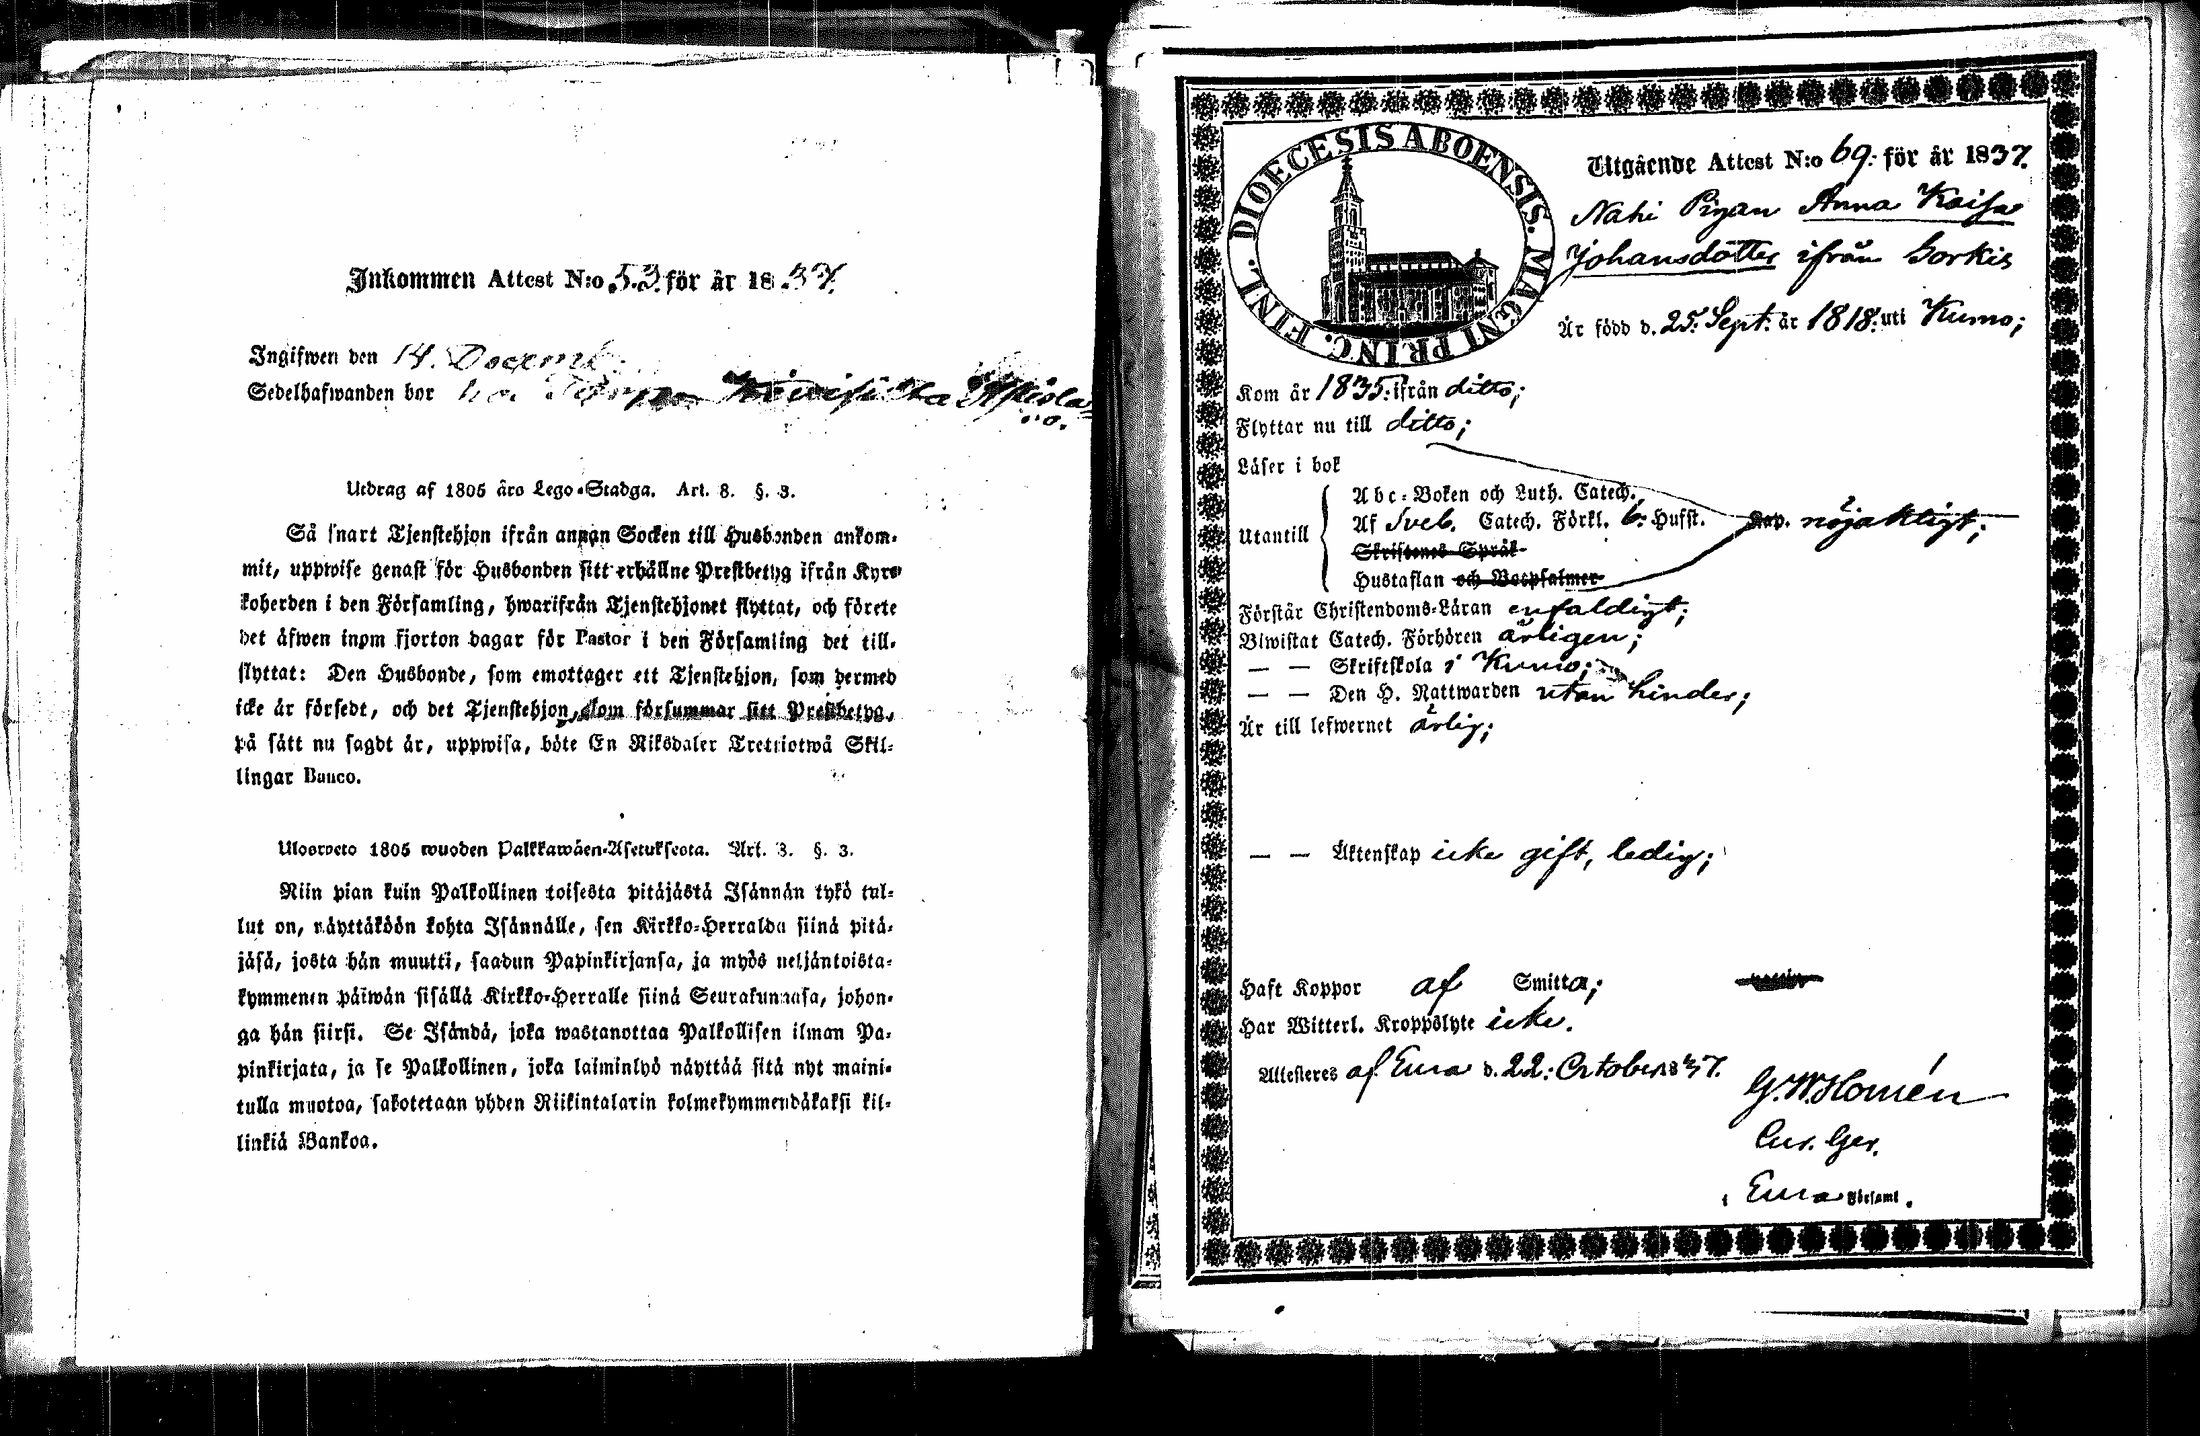 Inkommen Attest N:o 53 för år 1837.
Ingifwen den 14. Decemb.
Sedelhafwanden bor
Utdrag af 1805 års Lego-Stadga. Art. 8. §. 3.
Så snart Tjenstehjon ifrån annan Socken till Husbonden ankom-
mit, uppwise genast för Husbonden sitt erhållne Prestbetyg ifrån Kyr-
koherden i den Församling, hwarifrån Tjenstehjonet flyttat, och förete
det äfwen inom fjorton dagar för Pastor i den Församling det till-
flyttat: Den Husbonde, som emottager ett Tjenstehjon, som dermed
icke är försedt, och det Tjenstehjon, som försummar sitt Prestbetyg,
på sätt nu sagdt är, uppwisa, böte En Riksdaler Trettiotwå Skil-
lingar Banco.
Ulosweto 1805 wuoden Palkkawäen-Asetuksesta. Art. 8. §. 3.
Niin pian kuin Palkollinen toisesta pitäjästä Isännän tykö tul-
lut on, näyttäköön kohta Isännälle, sen Kirkko-Herralda siinä pitä-
jäsä, josta hän muutti, saadun Papinkirjansa, ja myös neljäntoista-
kymmenen päiwän sisällä Kirkko-Herralle siinä Seurakunnasa, johon-
ga hän siirsi. Se Isändä, joka wastanottaa Palkollisen ilman Pa-
pinkirjata, ja se Palkollinen, joka laiminlyö näyttää sitä nyt maini-
tulla muotoa, sakotetaan yhden Riikintalarin kolmekymmendäkaksi kil-
linkiä Bankoa.
DIOECESIS ABOENSIS. MAGNI PRINC. FINL.
Utgående Attest N:o 69: för år 1837.
Pigan Anna Kaisa
Johansdotter ifrån Sorkis
Är född d. 25. Sept. år 1818: uti Kumo;
Kom år 1835: ifrån ditto;
Flyttar nu till ditto;
Läser i bok
Utantill
Abc-Boken och Luth. Catech.
Af Sveb. Catech. Förkl. 6. Hufst. Kap. nöjaktigt;
Skriftenes Språk
Hustaflan och Botpsalmer
Förstår Christendoms-Läran enfaldigt;
Biwistat Catech. Förhören årligen;
— — Skriftskola i Kumo;
— — Den H. Nattwarden utan hinder;
Är till lefwernet ärlig;
— — Äktenskap icke gift, ledig;
Haft Koppor af Smitta;
Har Witterl. Kroppslyte icke.
Attesteres af Eura d. 22: October 1837.
G. W. Homén
Cur. Ger.
i Eura Församl.